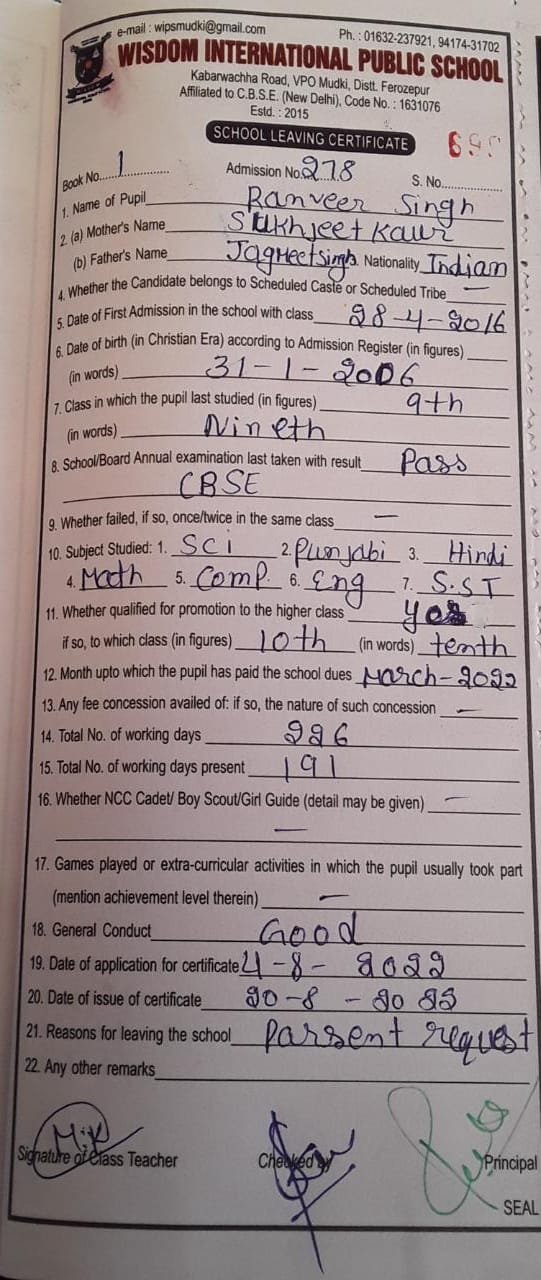 e-mail : wipsmudki@gmail.com Ph. : 01632-237921, 94174-31702
WISDOM INTERNATIONAL PUBLIC SCHOOL
Kabarwachha Road, VPO Mudki, Distt. Ferozepur
Affiliated to C.B.S.E. (New Delhi), Code No. : 1631076
Estd. : 2015
SCHOOL LEAVING CERTIFICATE
Book No. 1 Admission No. 278 S. No.
1. Name of Pupil Ranveer Singh
2. (a) Mother's Name Sukhjeet Kaur
(b) Father's Name Jagmeet singh Nationality Indian
4. Whether the Candidate belongs to Scheduled Caste or Scheduled Tribe —
5. Date of First Admission in the school with class 28-4-2016
6. Date of birth (in Christian Era) according to Admission Register (in figures)
(in words) 31-1-2006
7. Class in which the pupil last studied (in figures) 9th
(in words) Nineth
8. School/Board Annual examination last taken with result Pass
CBSE
9. Whether failed, if so, once/twice in the same class —
10. Subject Studied: 1. Sci 2. Punjabi 3. Hindi
4. Math 5. Comp. 6. Eng 7. S.ST
11. Whether qualified for promotion to the higher class yes
if so, to which class (in figures) 10th (in words) tenth
12. Month upto which the pupil has paid the school dues March-2022
13. Any fee concession availed of: if so, the nature of such concession —
14. Total No. of working days 226
15. Total No. of working days present 191
16. Whether NCC Cadet/ Boy Scout/Girl Guide (detail may be given) —
—
17. Games played or extra-curricular activities in which the pupil usually took part
(mention achievement level therein) —
18. General Conduct Good
19. Date of application for certificate 4-8-2022
20. Date of issue of certificate 20-8-2022
21. Reasons for leaving the school Parsent request
22. Any other remarks
Signature of Class Teacher Checked by Principal
SEAL